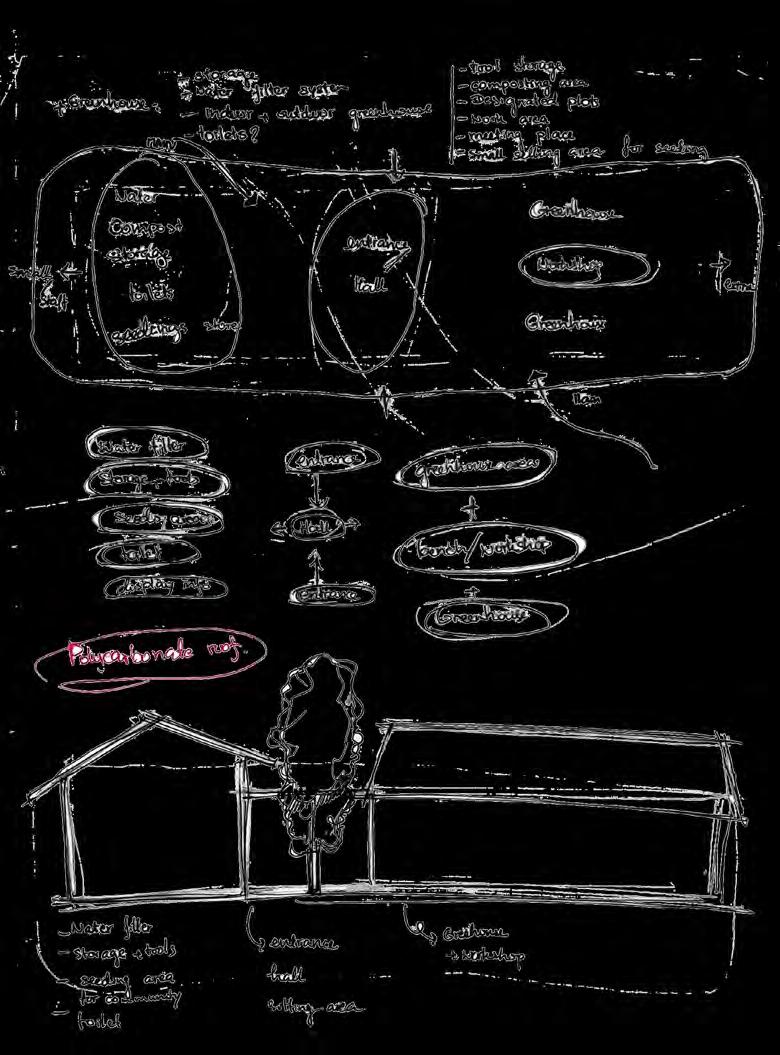 - storage
- water filter system
- Greenhouse -
- indoor + outdoor greenhouse
- toilets?
- tool storage
- composting area
- Designated plots
- work area
- meeting place
- small sitting area for seeding
Water
Compost
toilets
seedlings store
small
staff
entrance
Hall
Greenhouse
Workshop
Greenhouse
Main
Water filler
Storage + tools
toilet
display info
entrance
Hall
Entrance
greenhouse area
+
/ workshop
+
Greenhouse
Polycarbonate roof.
- Water filler
- storage + tools
- seeding area
for community
- toilet
entrance
hall
sitting area
Greehouse
+ workshop